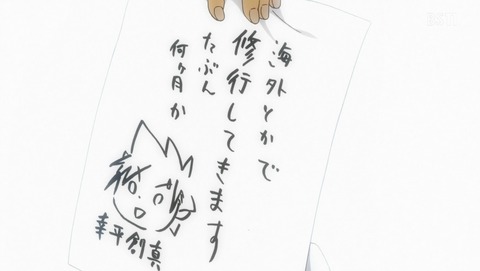 海外とかで
修行してきます
たぶん
何ヶ月か
幸平創真